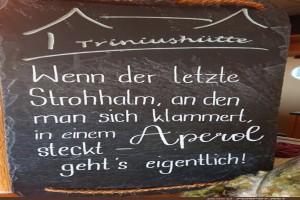 Triniushütte
Wenn der letzte
Strohhalm, an den
man sich klammert,
in einem Aperol
steckt –
geht's eigentlich!